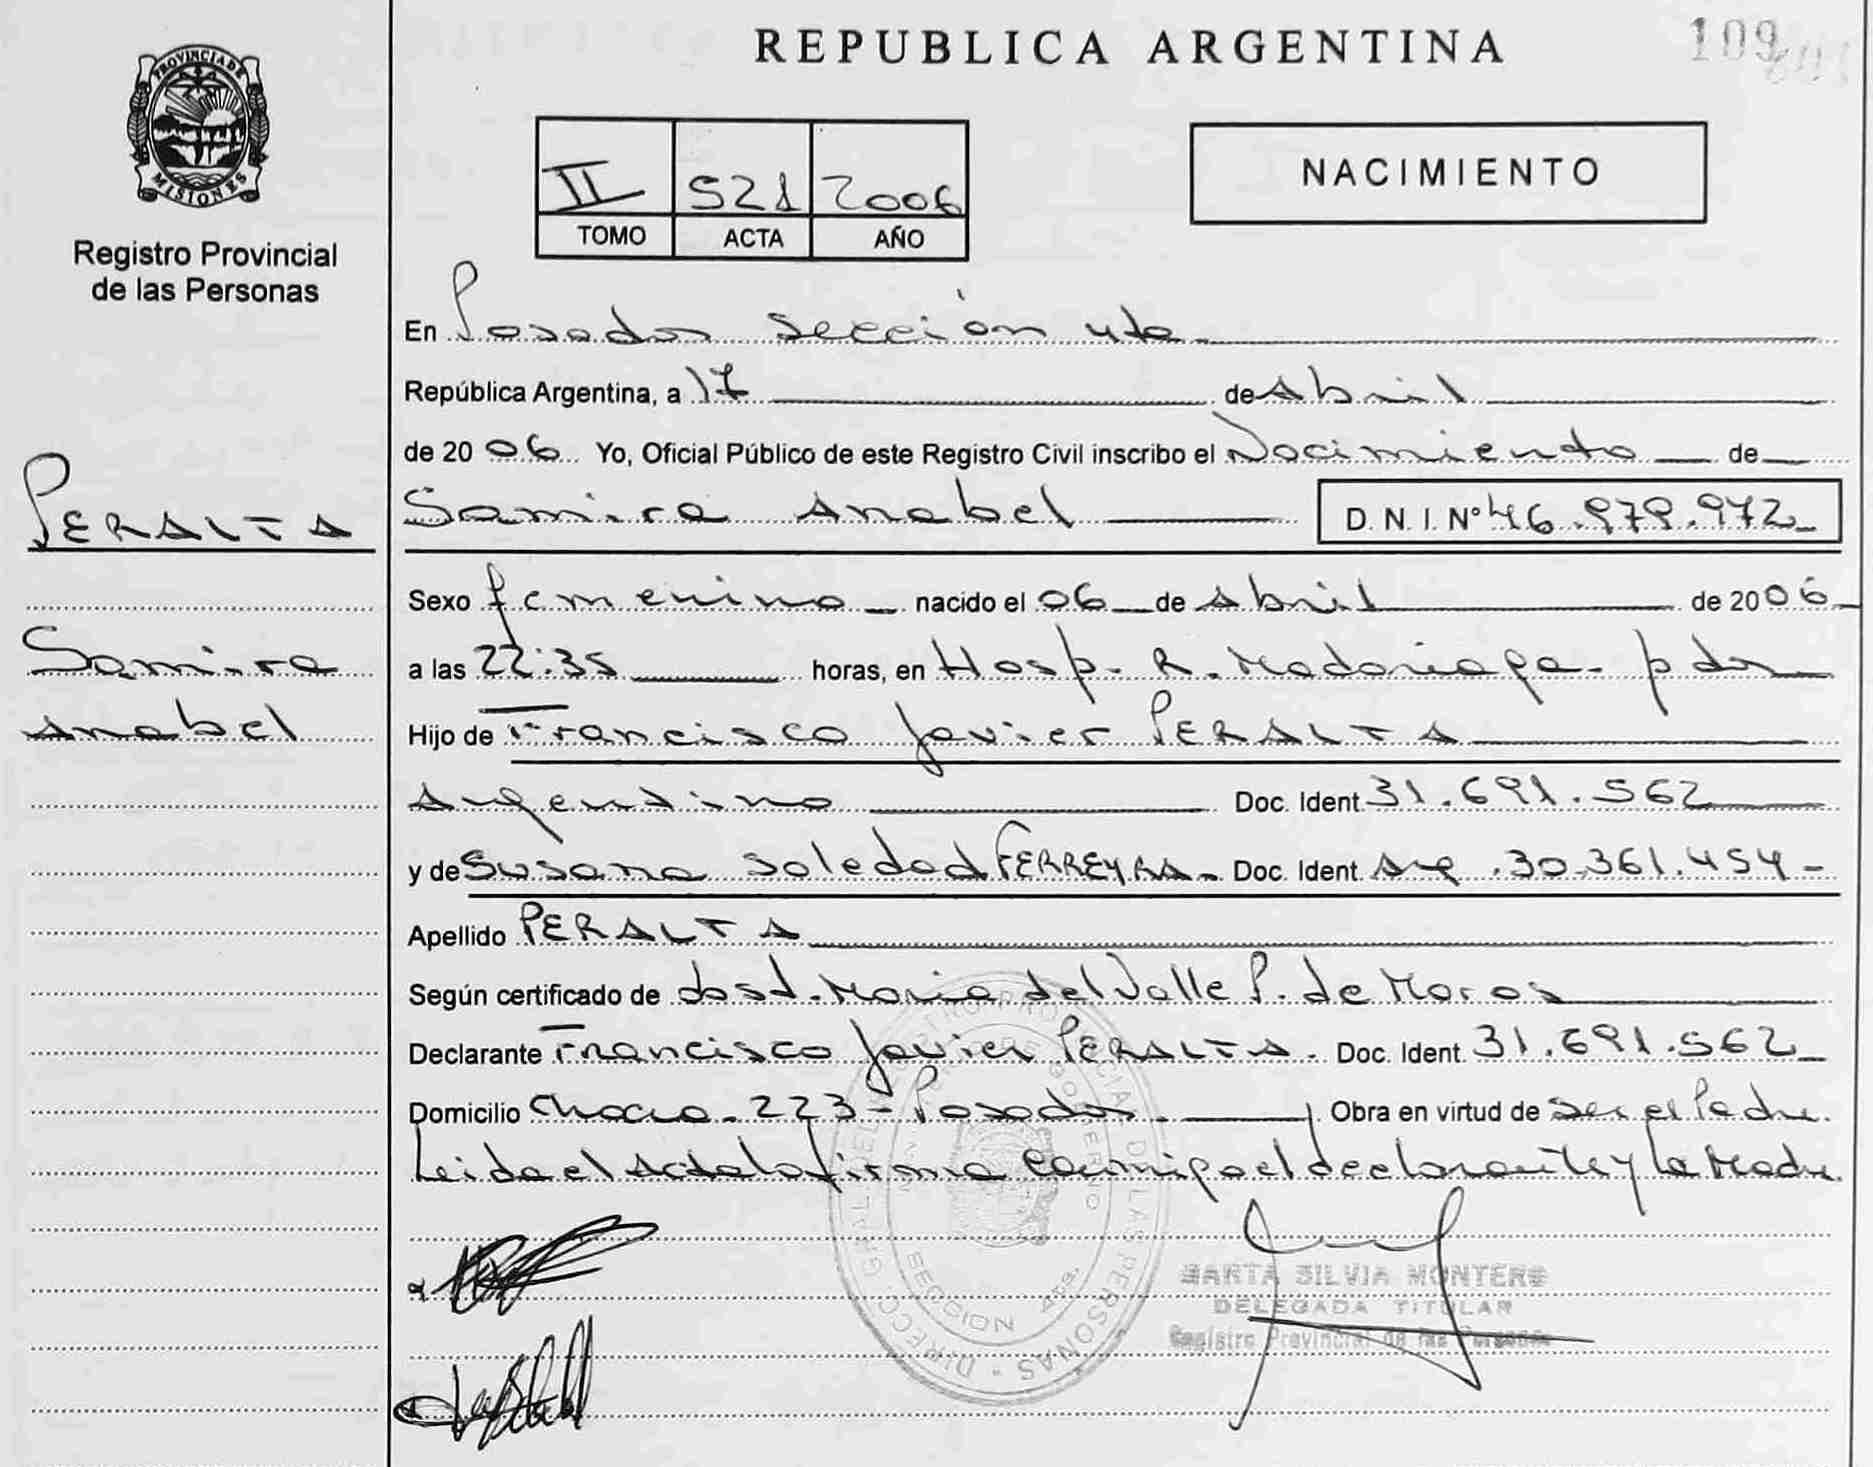 REPUBLICA ARGENTINA
109
PROVINCIA DE
MISIONES
Registro Provincial
de las Personas
II 521 2006
TOMO ACTA AÑO
NACIMIENTO
En Posadas sección 4ta
República Argentina, a 17 de Abril
de 2006 Yo, Oficial Público de este Registro Civil inscribo el Nacimiento de
Samira Anabel D. N. I. Nº 46.979.972
PERALTA
Samira
Anabel
Sexo femenino nacido el 06 de Abril de 2006
a las 22:35 horas, en Hosp. R. Madariaga - pdas
Hijo de Francisco Javier PERALTA
Argentino Doc. Ident. 31.691.562
y de Susana Soledad FERREYRA Doc. Ident. Arg. 30.361.454
Apellido PERALTA
Según certificado de obst. Maria del Valle P. de Moros
Declarante Francisco Javier PERALTA. Doc. Ident. 31.691.562
Domicilio Chaco - 223 - Posadas. Obra en virtud de Ser el Padre.
Leida el Acta la firma conmigo el declarante y la Madre
MARTA SILVIA MONTERO
DELEGADA TITULAR
Registro Provincial de las Personas